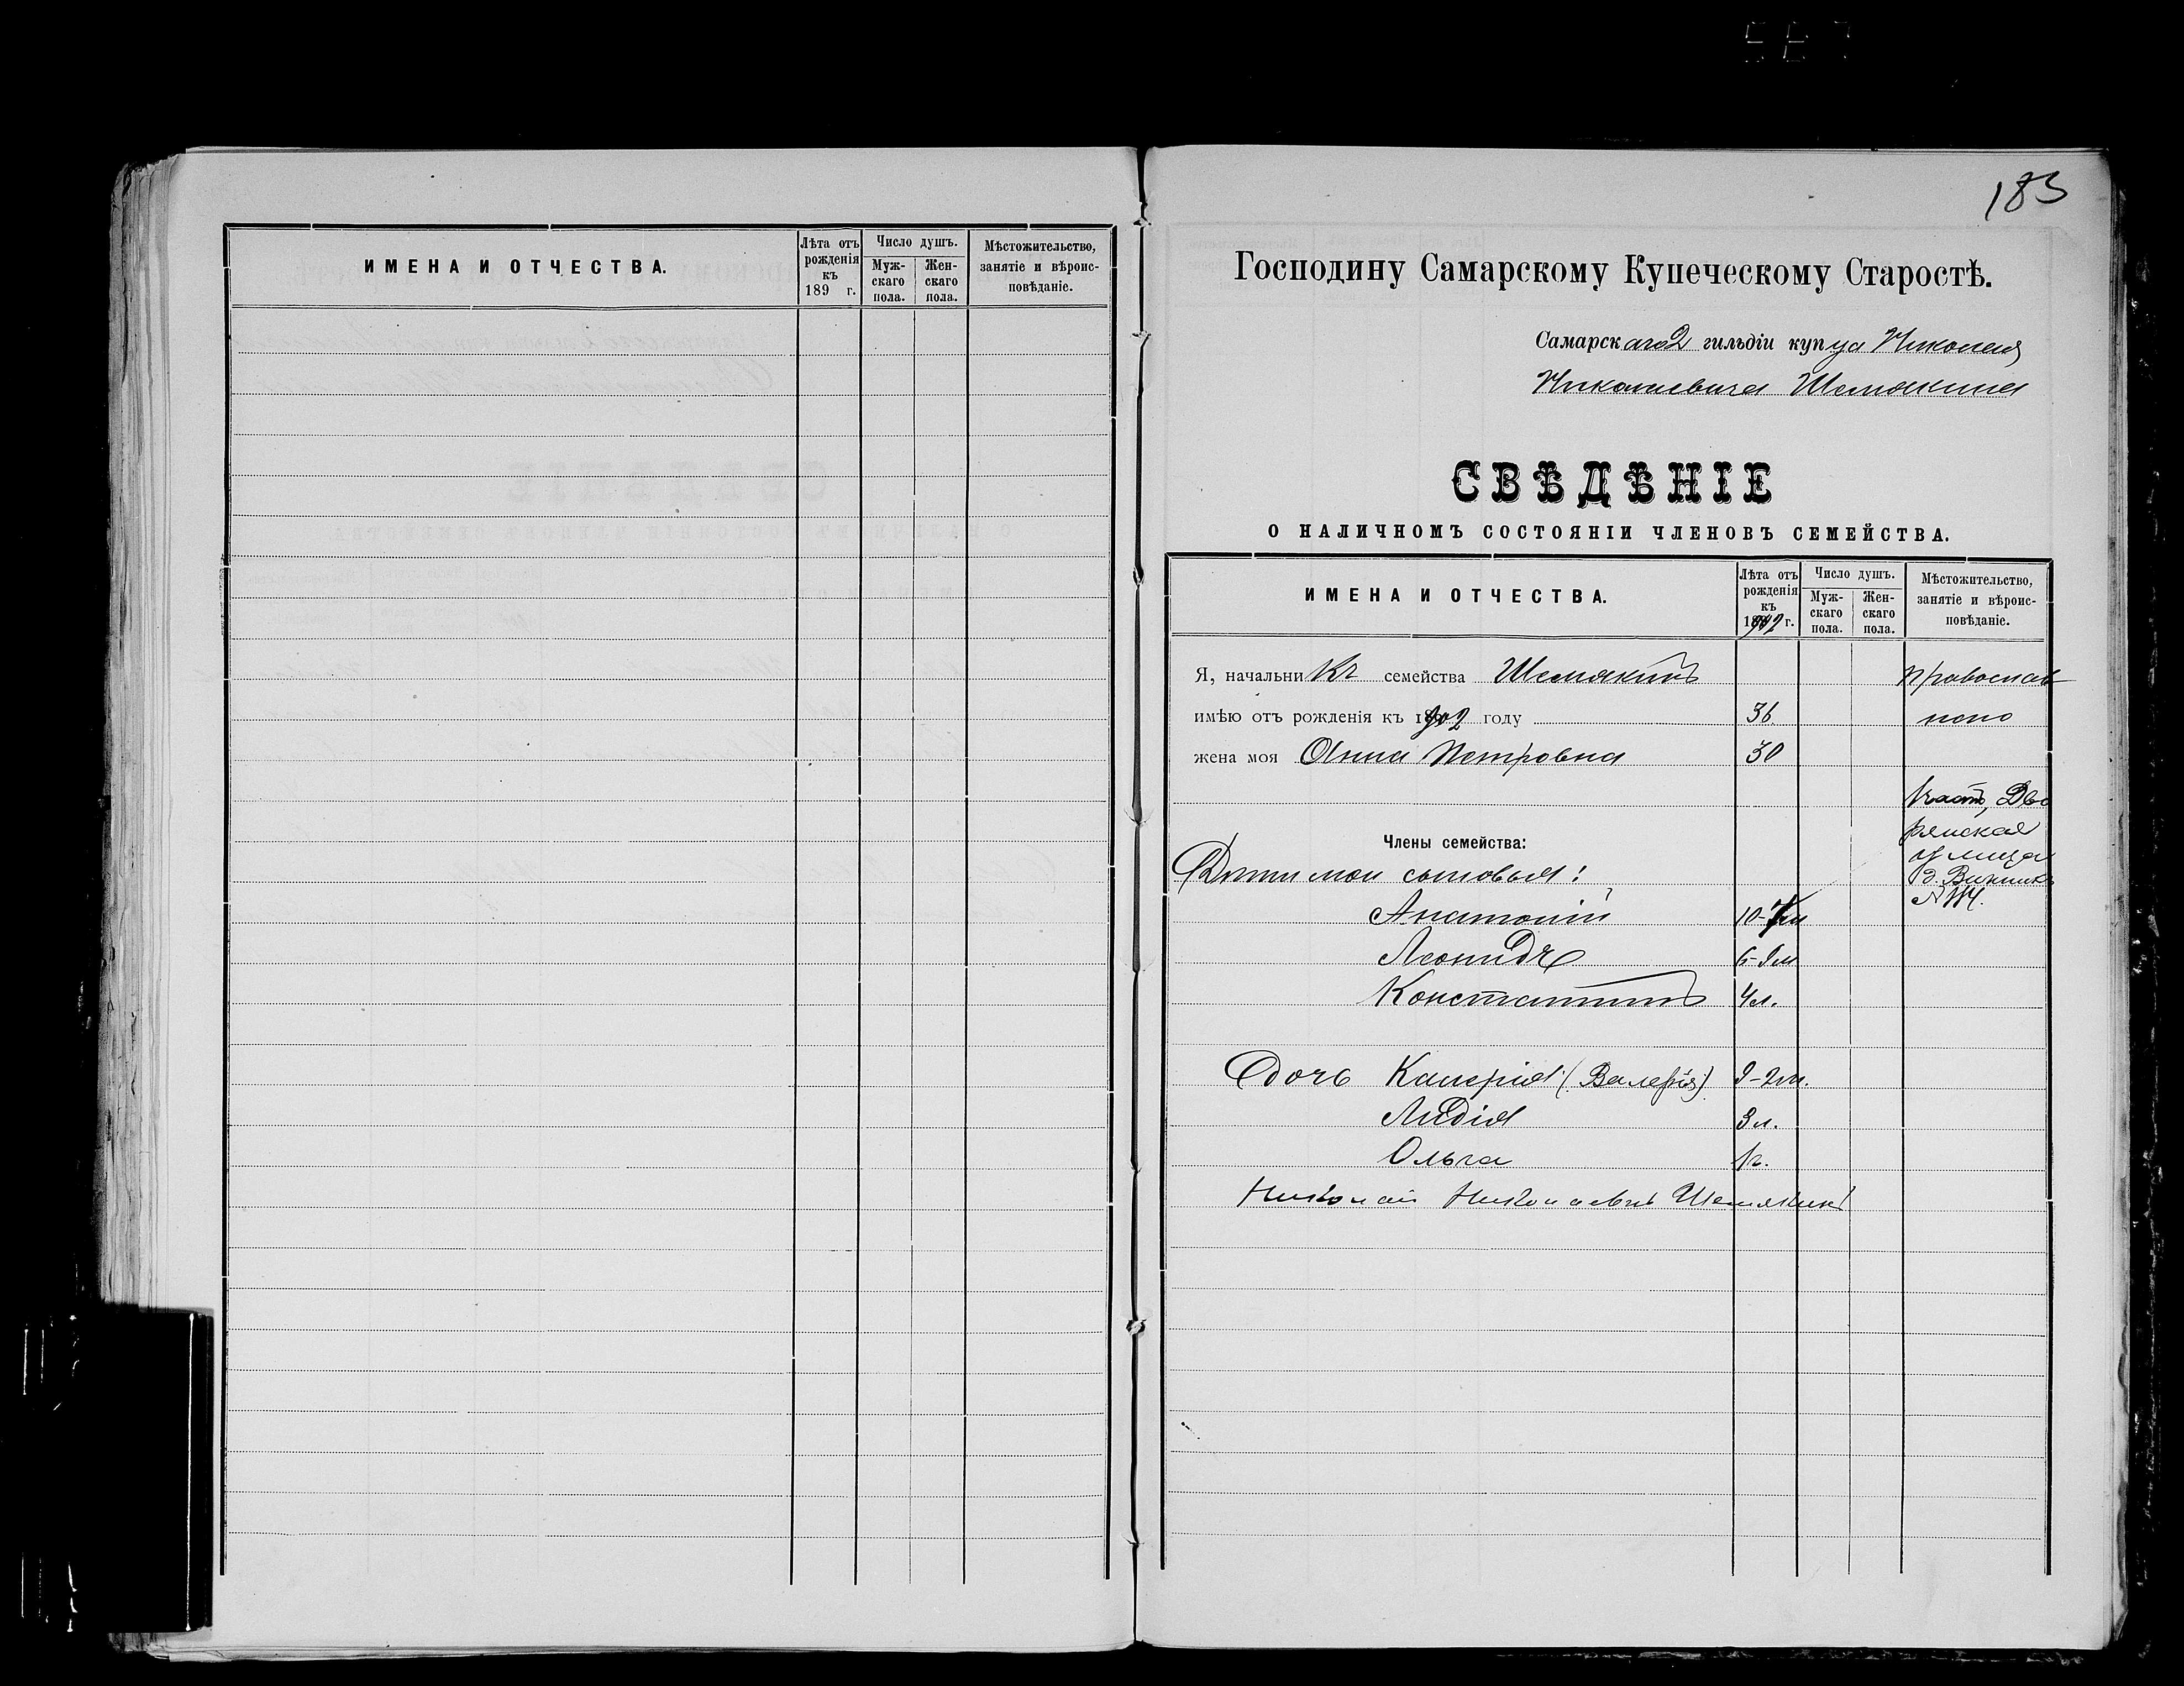 ИМЕНА И ОТЧЕСТВА.
Лѣта отъ рожденія къ 189 г.
Число душъ.
Муж-скаго пола.
Жен-скаго пола.
Мѣстожительство, занятіе и вѣроис-повѣданіе.
183
Господину Самарскому Купеческому Старостѣ.
Самарскаго 2 гильдіи купца Николая
Николаевича Шемякина
СВѢДѢНІЕ
О НАЛИЧНОМЪ СОСТОЯНІИ ЧЛЕНОВЪ СЕМЕЙСТВА.
ИМЕНА И ОТЧЕСТВА.
Лѣта отъ рожденія къ 1902 г.
Число душъ.
Муж-скаго пола.
Жен-скаго пола.
Мѣстожительство, занятіе и вѣроис-повѣданіе.
Я, начальникъ семейства Шемякинъ Православ
имѣю отъ рожденія къ 1902 году 36 наго
жена моя Анна Петровна 30
1 часть, Дво
рянская
Члены семейства:
улица
Дѣти мои сыновья: д.
№
Анатолій 10
Леонидъ 6-9 м
Константинъ 4 л.
Дочь Калерія (Валерія) 9-2 м.
Лидія 3 л.
Ольга 1 г.
Николай Николаевичъ Шемякинъ